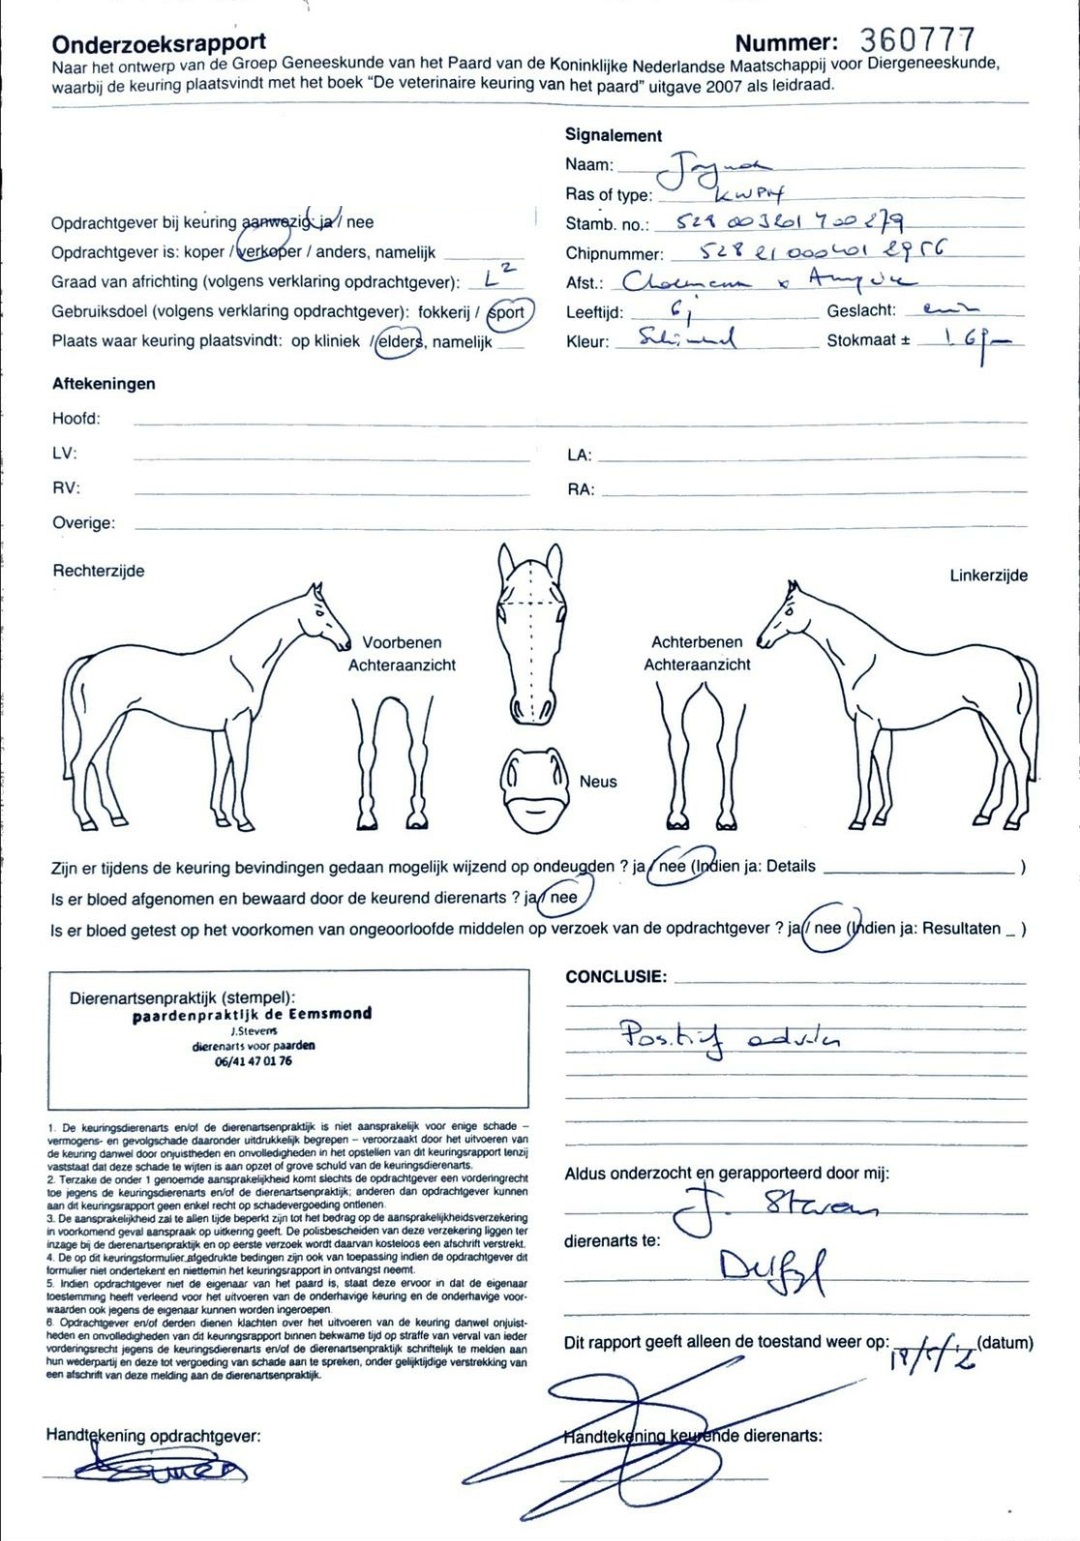 Onderzoeksrapport
Nummer: 360777
Naar het ontwerp van de Groep Geneeskunde van het Paard van de Koninklijke Nederlandse Maatschappij voor Diergeneeskunde,
waarbij de keuring plaatsvindt met het boek “De veterinaire keuring van het paard” uitgave 2007 als leidraad.
Signalement
Naam:
Ras of type: KWPN
Opdrachtgever bij keuring aanwezig ja / nee
Stamb. no.: 528 003201 700279
Opdrachtgever is: koper / verkoper / anders, namelijk
Chipnummer:
Graad van africhting (volgens verklaring opdrachtgever): L2
Afst.: x
Gebruiksdoel (volgens verklaring opdrachtgever): fokkerij / sport
Leeftijd: 6j Geslacht:
Plaats waar keuring plaatsvindt: op kliniek / elders, namelijk
Kleur: Schimmel Stokmaat ±
Aftekeningen
Hoofd:
LV: LA:
RV: RA:
Overige:
Rechterzijde
Linkerzijde
Voorbenen
Achteraanzicht
Achterbenen
Achteraanzicht
Neus
Zijn er tijdens de keuring bevindingen gedaan mogelijk wijzend op ondeugden ? ja / nee (Indien ja: Details )
Is er bloed afgenomen en bewaard door de keurend dierenarts ? ja / nee
Is er bloed getest op het voorkomen van ongeoorloofde middelen op verzoek van de opdrachtgever ? ja / nee (Indien ja: Resultaten _ )
Dierenartsenpraktijk (stempel):
paardenpraktijk de Eemsmond
J.Stevens
dierenarts voor paarden
06/41 47 01 76
1. De keuringsdierenarts en/of de dierenartsenpraktijk is niet aansprakelijk voor enige schade –
vermogens- en gevolgschade daaronder uitdrukkelijk begrepen – veroorzaakt door het uitvoeren van
de keuring danwel door onjuistheden en onvolledigheden in het opstellen van dit keuringsrapport tenzij
vaststaat dat deze schade te wijten is aan opzet of grove schuld van de keuringsdierenarts.
2. Terzake de onder 1 genoemde aansprakelijkheid komt slechts de opdrachtgever een vorderingrecht
toe jegens de keuringsdierenarts en/of de dierenartsenpraktijk; anderen dan opdrachtgever kunnen
aan dit keuringsrapport geen enkel recht op schadevergoeding ontlenen.
3. De aansprakelijkheid zal te allen tijde beperkt zijn tot het bedrag op de aansprakelijkheidsverzekering
in voorkomend geval aanspraak op uitkering geeft. De polisbescheiden van deze verzekering liggen ter
inzage bij de dierenartsenpraktijk en op eerste verzoek wordt daarvan kosteloos een afschrift verstrekt.
4. De op dit keuringsformulier afgedrukte bedingen zijn ook van toepassing indien de opdrachtgever dit
formulier niet ondertekent en niettemin het keuringsrapport in ontvangst neemt.
5. Indien opdrachtgever niet de eigenaar van het paard is, staat deze ervoor in dat de eigenaar
toestemming heeft verleend voor het uitvoeren van de onderhavige keuring en de onderhavige voor-
waarden ook jegens de eigenaar kunnen worden ingeroepen.
6. Opdrachtgever en/of derden dienen klachten over het uitvoeren van de keuring danwel onjuist-
heden en onvolledigheden van dit keuringsrapport binnen bekwame tijd op straffe van verval van ieder
vorderingsrecht jegens de keuringsdierenarts en/of de dierenartsenpraktijk schriftelijk te melden aan
hun wederpartij en deze tot vergoeding van schade aan te spreken, onder gelijktijdige verstrekking van
een afschrift van deze melding aan de dierenartsenpraktijk.
CONCLUSIE:
Positief advies
Aldus onderzocht en gerapporteerd door mij:
J. Stevens
dierenarts te:
Delfzijl
Dit rapport geeft alleen de toestand weer op: (datum)
Handtekening opdrachtgever:
Handtekening keurende dierenarts: